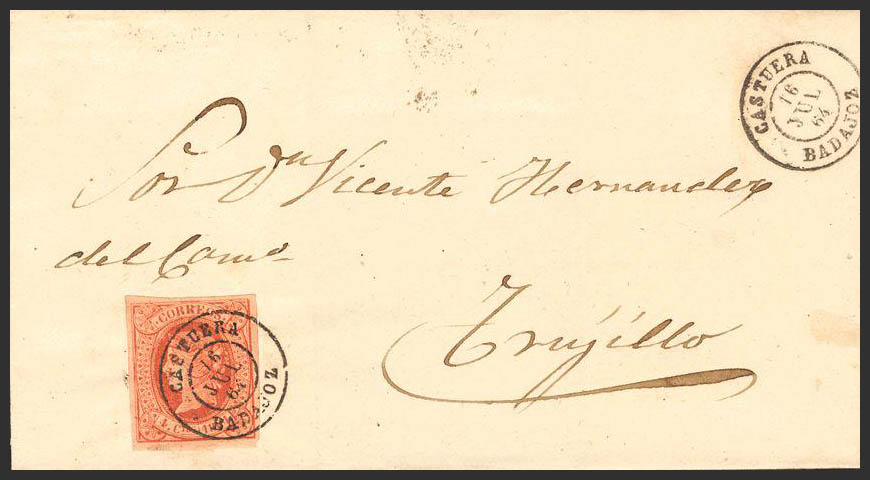 CASTUERA
16
JUL
64
BADAJOZ
Sor Dn Vicente Hernandez
del Como
Trujillo
CORREOS
CASTUERA
16
JUL
64
BADAJOZ